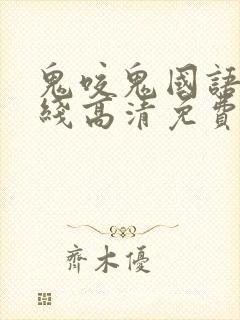 鬼咬鬼國語
綫高清免費
齊木優